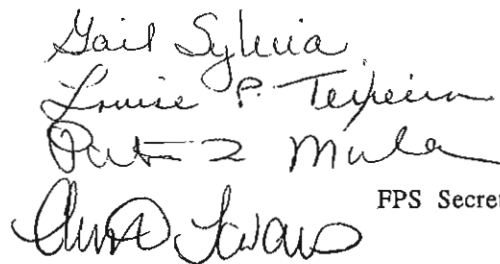 Gail Sylvia
Louise P. Teixeira
Mula
FPS Secret